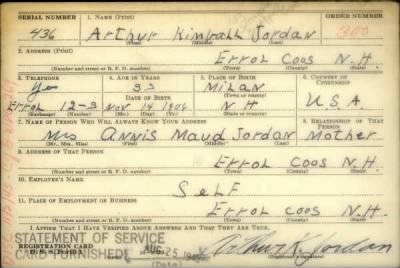 SERIAL NUMBER 1. NAME (Print) ORDER NUMBER
436 Arthur Kimball Jordan
(First) (Middle) (Last)
2. ADDRESS (Print)
Errol Coos N.H
(Number and street or R. F. D. number) (Town) (County) (State)
3. TELEPHONE 4. AGE IN YEARS 5. PLACE OF BIRTH 6. COUNTRY OF CITIZENSHIP
Yes Milan
DATE OF BIRTH (Town or county)
Errol 12-3 Nov 14 1906 N H U.S.A
(Exchange) (Number) (Mo.) (Day) (Yr.) (State or country)
7. NAME OF PERSON WHO WILL ALWAYS KNOW YOUR ADDRESS 8. RELATIONSHIP OF THAT PERSON
Mrs Annis Maud Jordan Mother
(Mr., Mrs., Miss) (First) (Middle) (Last)
9. ADDRESS OF THAT PERSON
Errol Coos N.H.
(Number and street or R. F. D. number) (Town) (County) (State)
10. EMPLOYER'S NAME
Self
11. PLACE OF EMPLOYMENT OR BUSINESS
Errol Coos N.H.
(Number and street or R. F. D. number) (Town) (County) (State)
I AFFIRM THAT I HAVE VERIFIED ABOVE ANSWERS AND THAT THEY ARE TRUE.
STATEMENT OF SERVICE
REGISTRATION CARD
CARD FURNISHED AUG 25 Arthur K. Jordan
(Date)